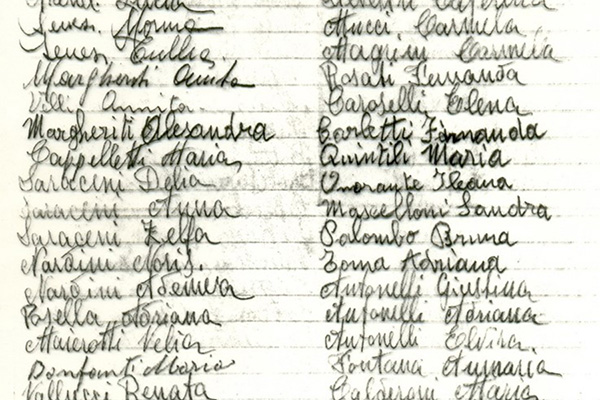 Norma
Tullia
Margheriti Anita
Villi Annita
Margheriti Alesandra
Cappelletti Maria
Saraceni Delia
Saraceni Anna
Saraceni Zelfa
Nardini Noris.
Nardini Ademera
Posella Adriana
Maierotti Velia
Bonfanti Maria
Vallucci Renata
Caterina
Mucci Carmela
Magrini Carmela
Rosati Fernanda
Caroselli Elena
Corbetti Firnanda
Quintili Maria
Onorante Ileana
Mascelloni Sandra
Palombo Bruna
Toma Adriana
Antonelli Giustina
Antonelli Adriana
Antonelli Elvira
Fontana Annaria
Calderoni Maria